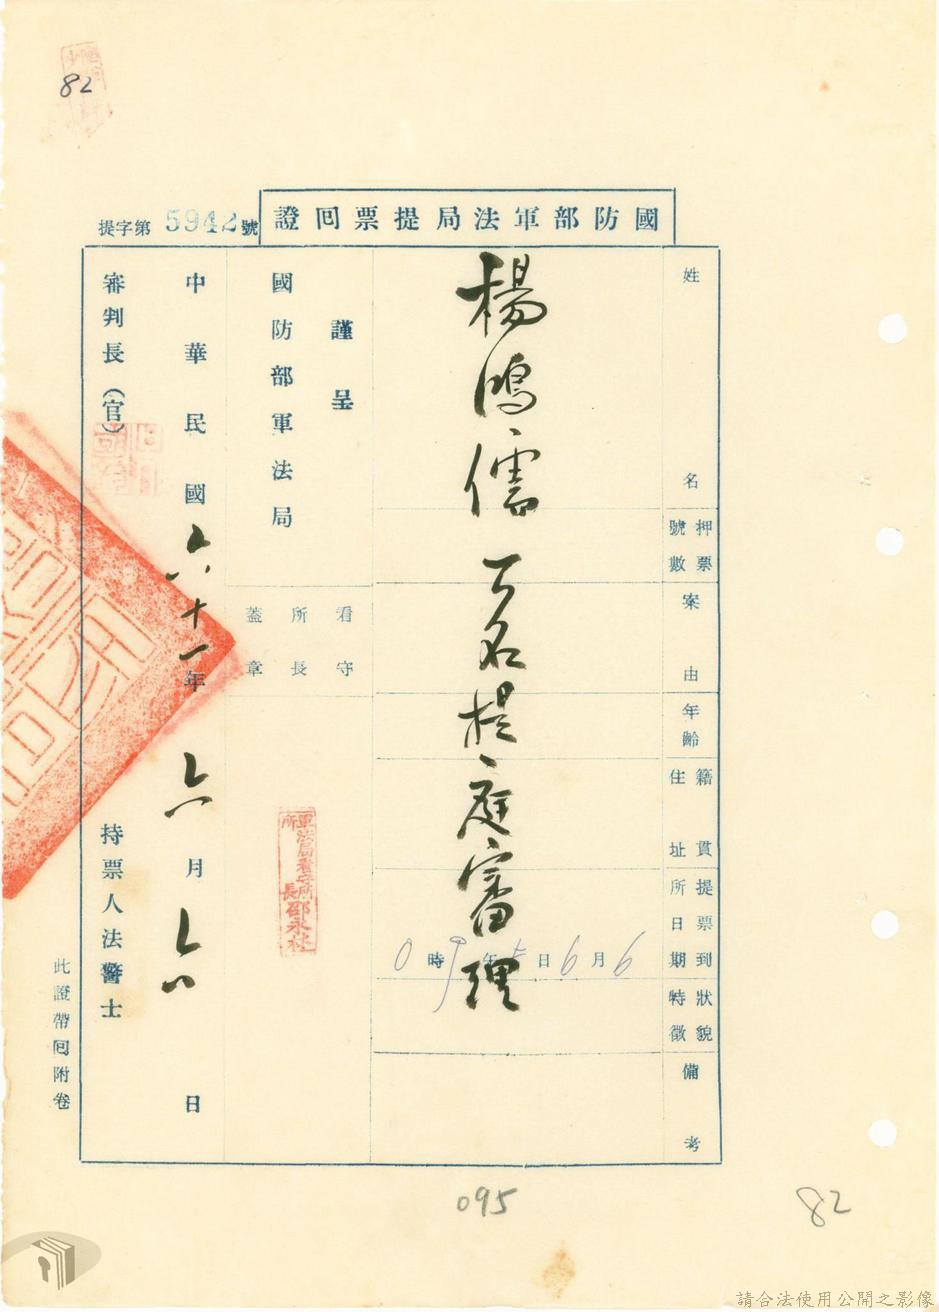 82
國防部軍法局提票回證
提字第5942號
姓名
押票號數
案由
年齡
籍貫住址
提票到所日期
狀貌特徵
備考
楊鴻儒一名提庭審理
6月6日 時0
謹呈
國防部軍法局
看守所長蓋章
軍法局看守所所長邵永
中華民國六十一年六月六日
審判長(官)
持票人法警士
此證帶回附卷
095
82
請合法使用公開之影像